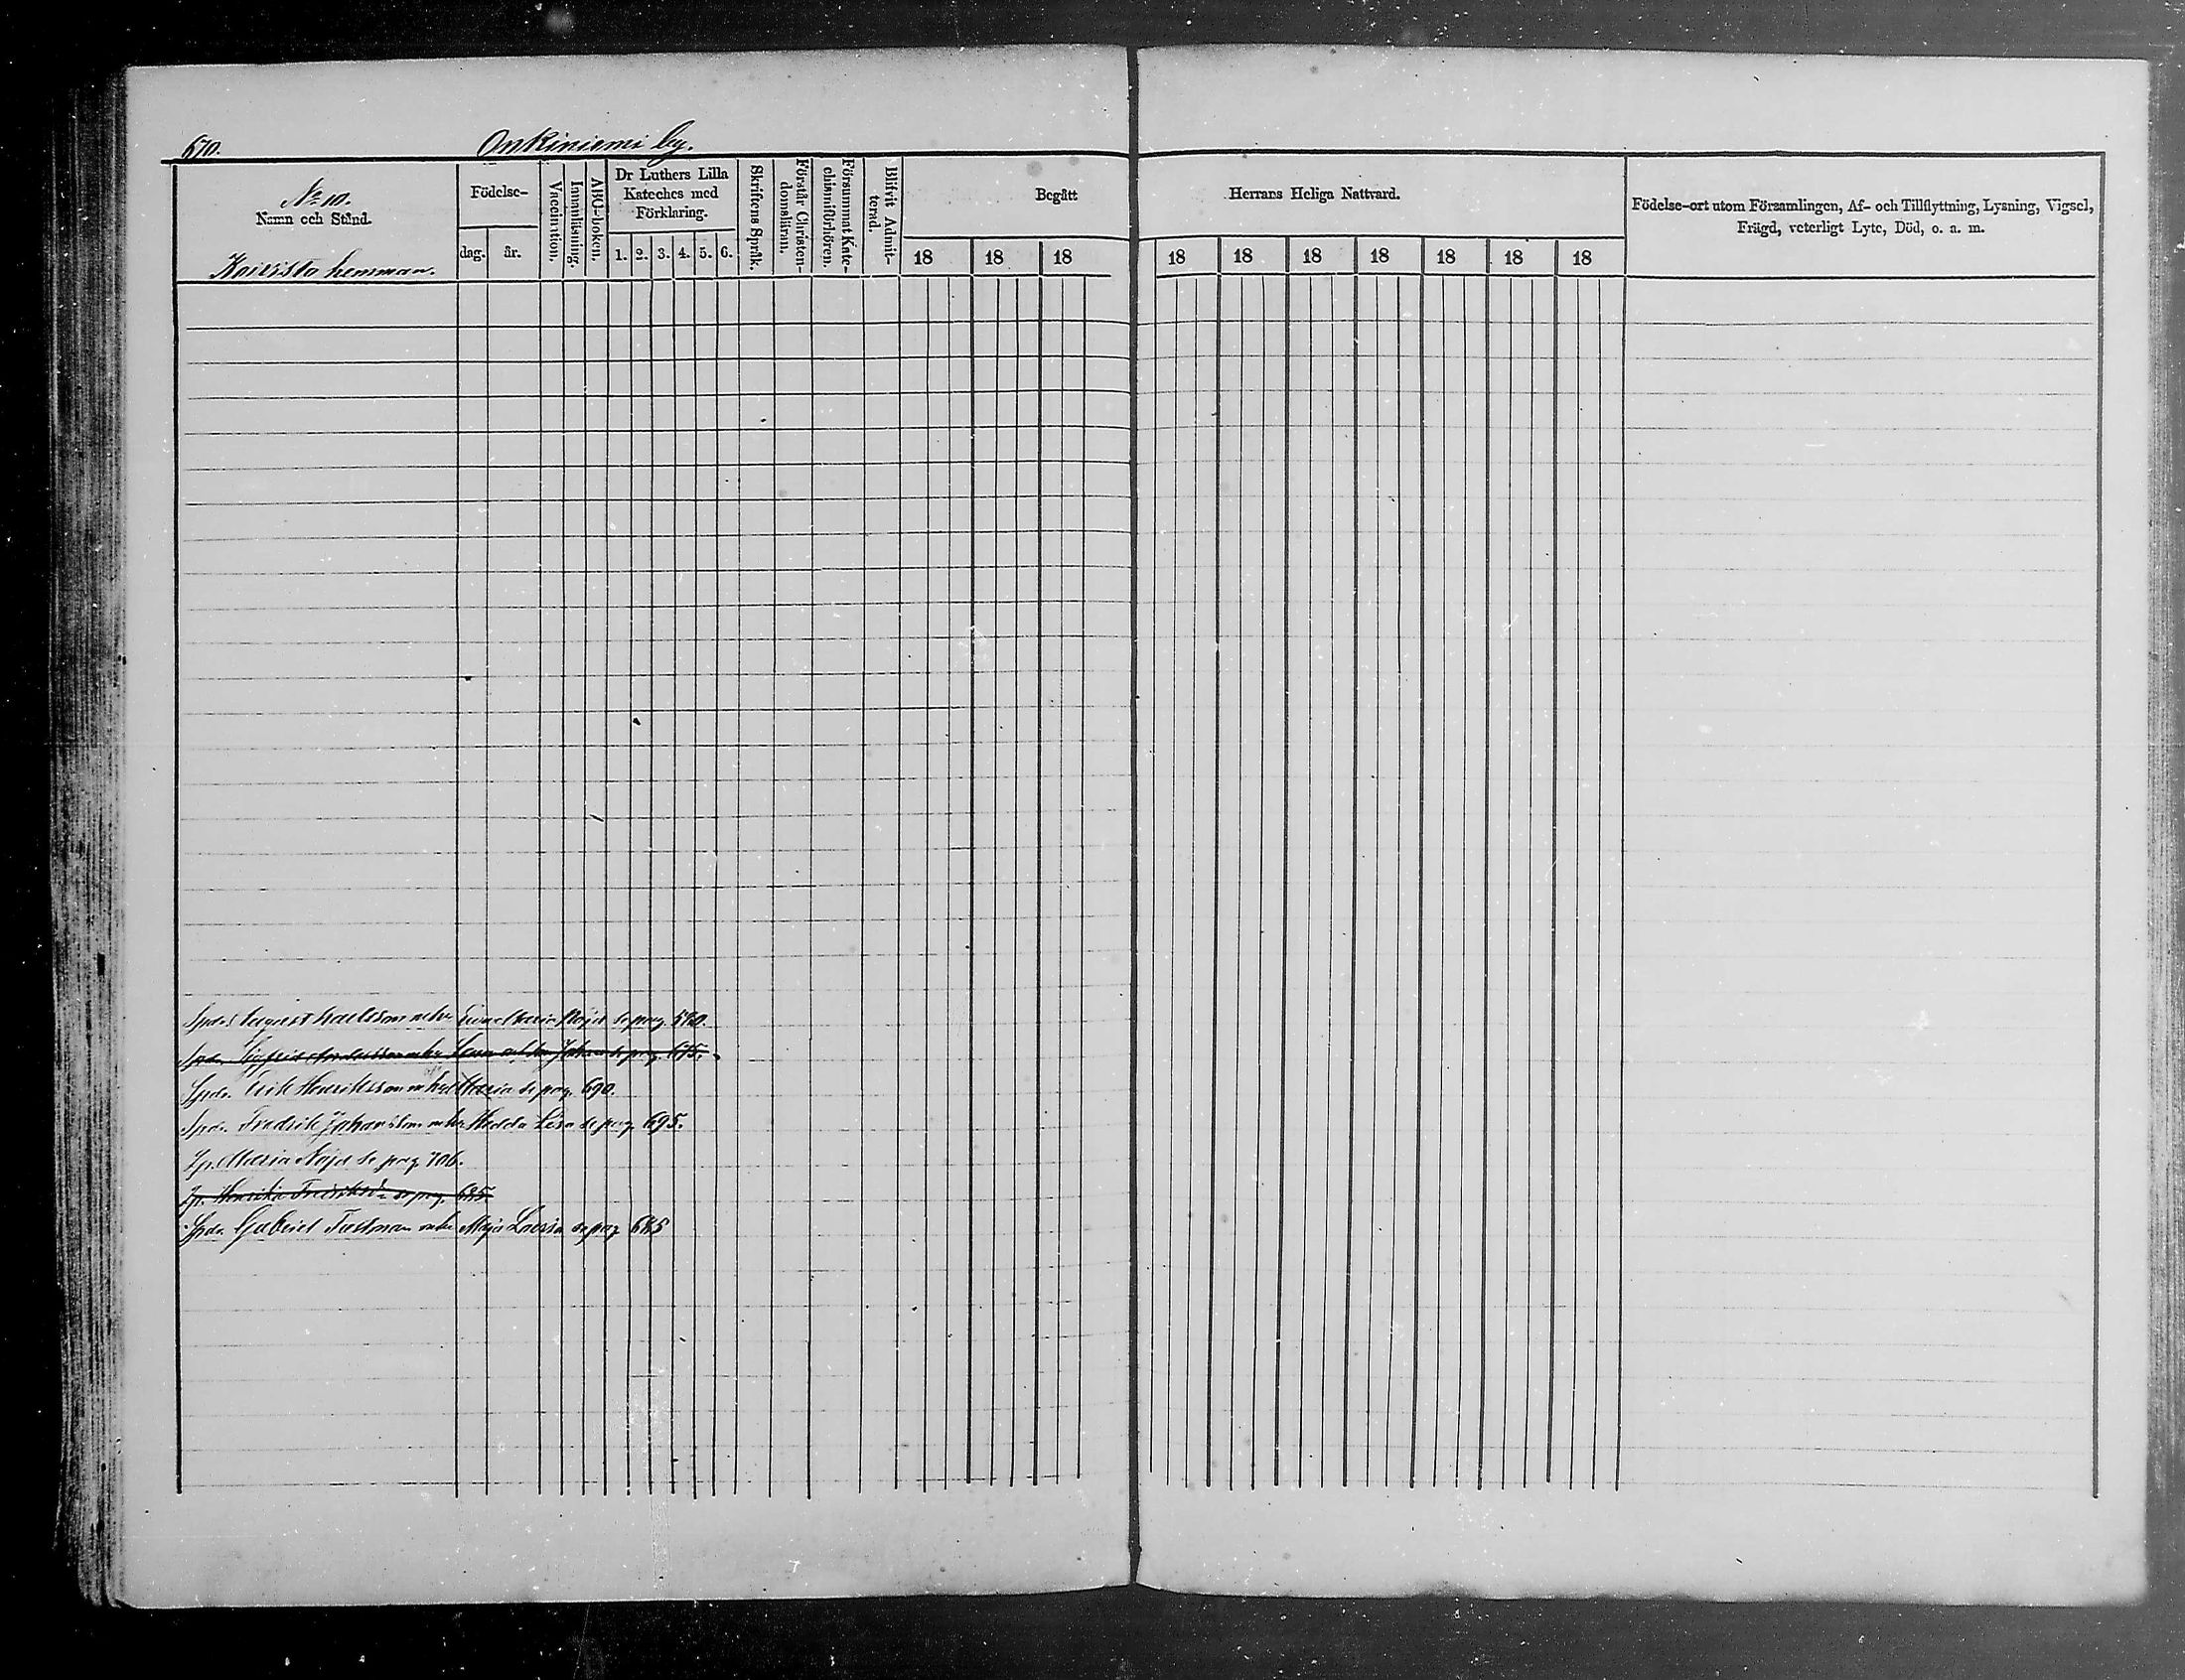 670. Onkiniemi by.
No 10.
Namn och Stånd.
hemman.
Födelse-
dag. år.
Vaccination.
Innanläsning.
ABC-boken.
Dr Luthers Lilla
Kateches med
Förklaring.
1. 2. 3. 4. 5. 6.
Skriftens Språk.
Förstår Christen-
domsläran.
Försummat Kate-
chismiförhören.
Blifvit Admit-
terad.
Begått Herrans Heliga Nattvard.
18 18 18 18 18 18 18 18 18 18
Födelse-ort utom Församlingen, Af- och Tillflyttning, Lysning, Vigsel,
Frägd, veterligt Lyte, Död, o. a. m.
August se pag.
Sigfrid se pag. 675.
Spdr. Erik Henriksson Maria se pag. 690.
Spdr. Fredrik Johansson Hedda Lisa se pag. 695.
Maria Nöjd se pag 706.
Henrika se pag. 685
Spdr. Gabriel Maja se pag 685